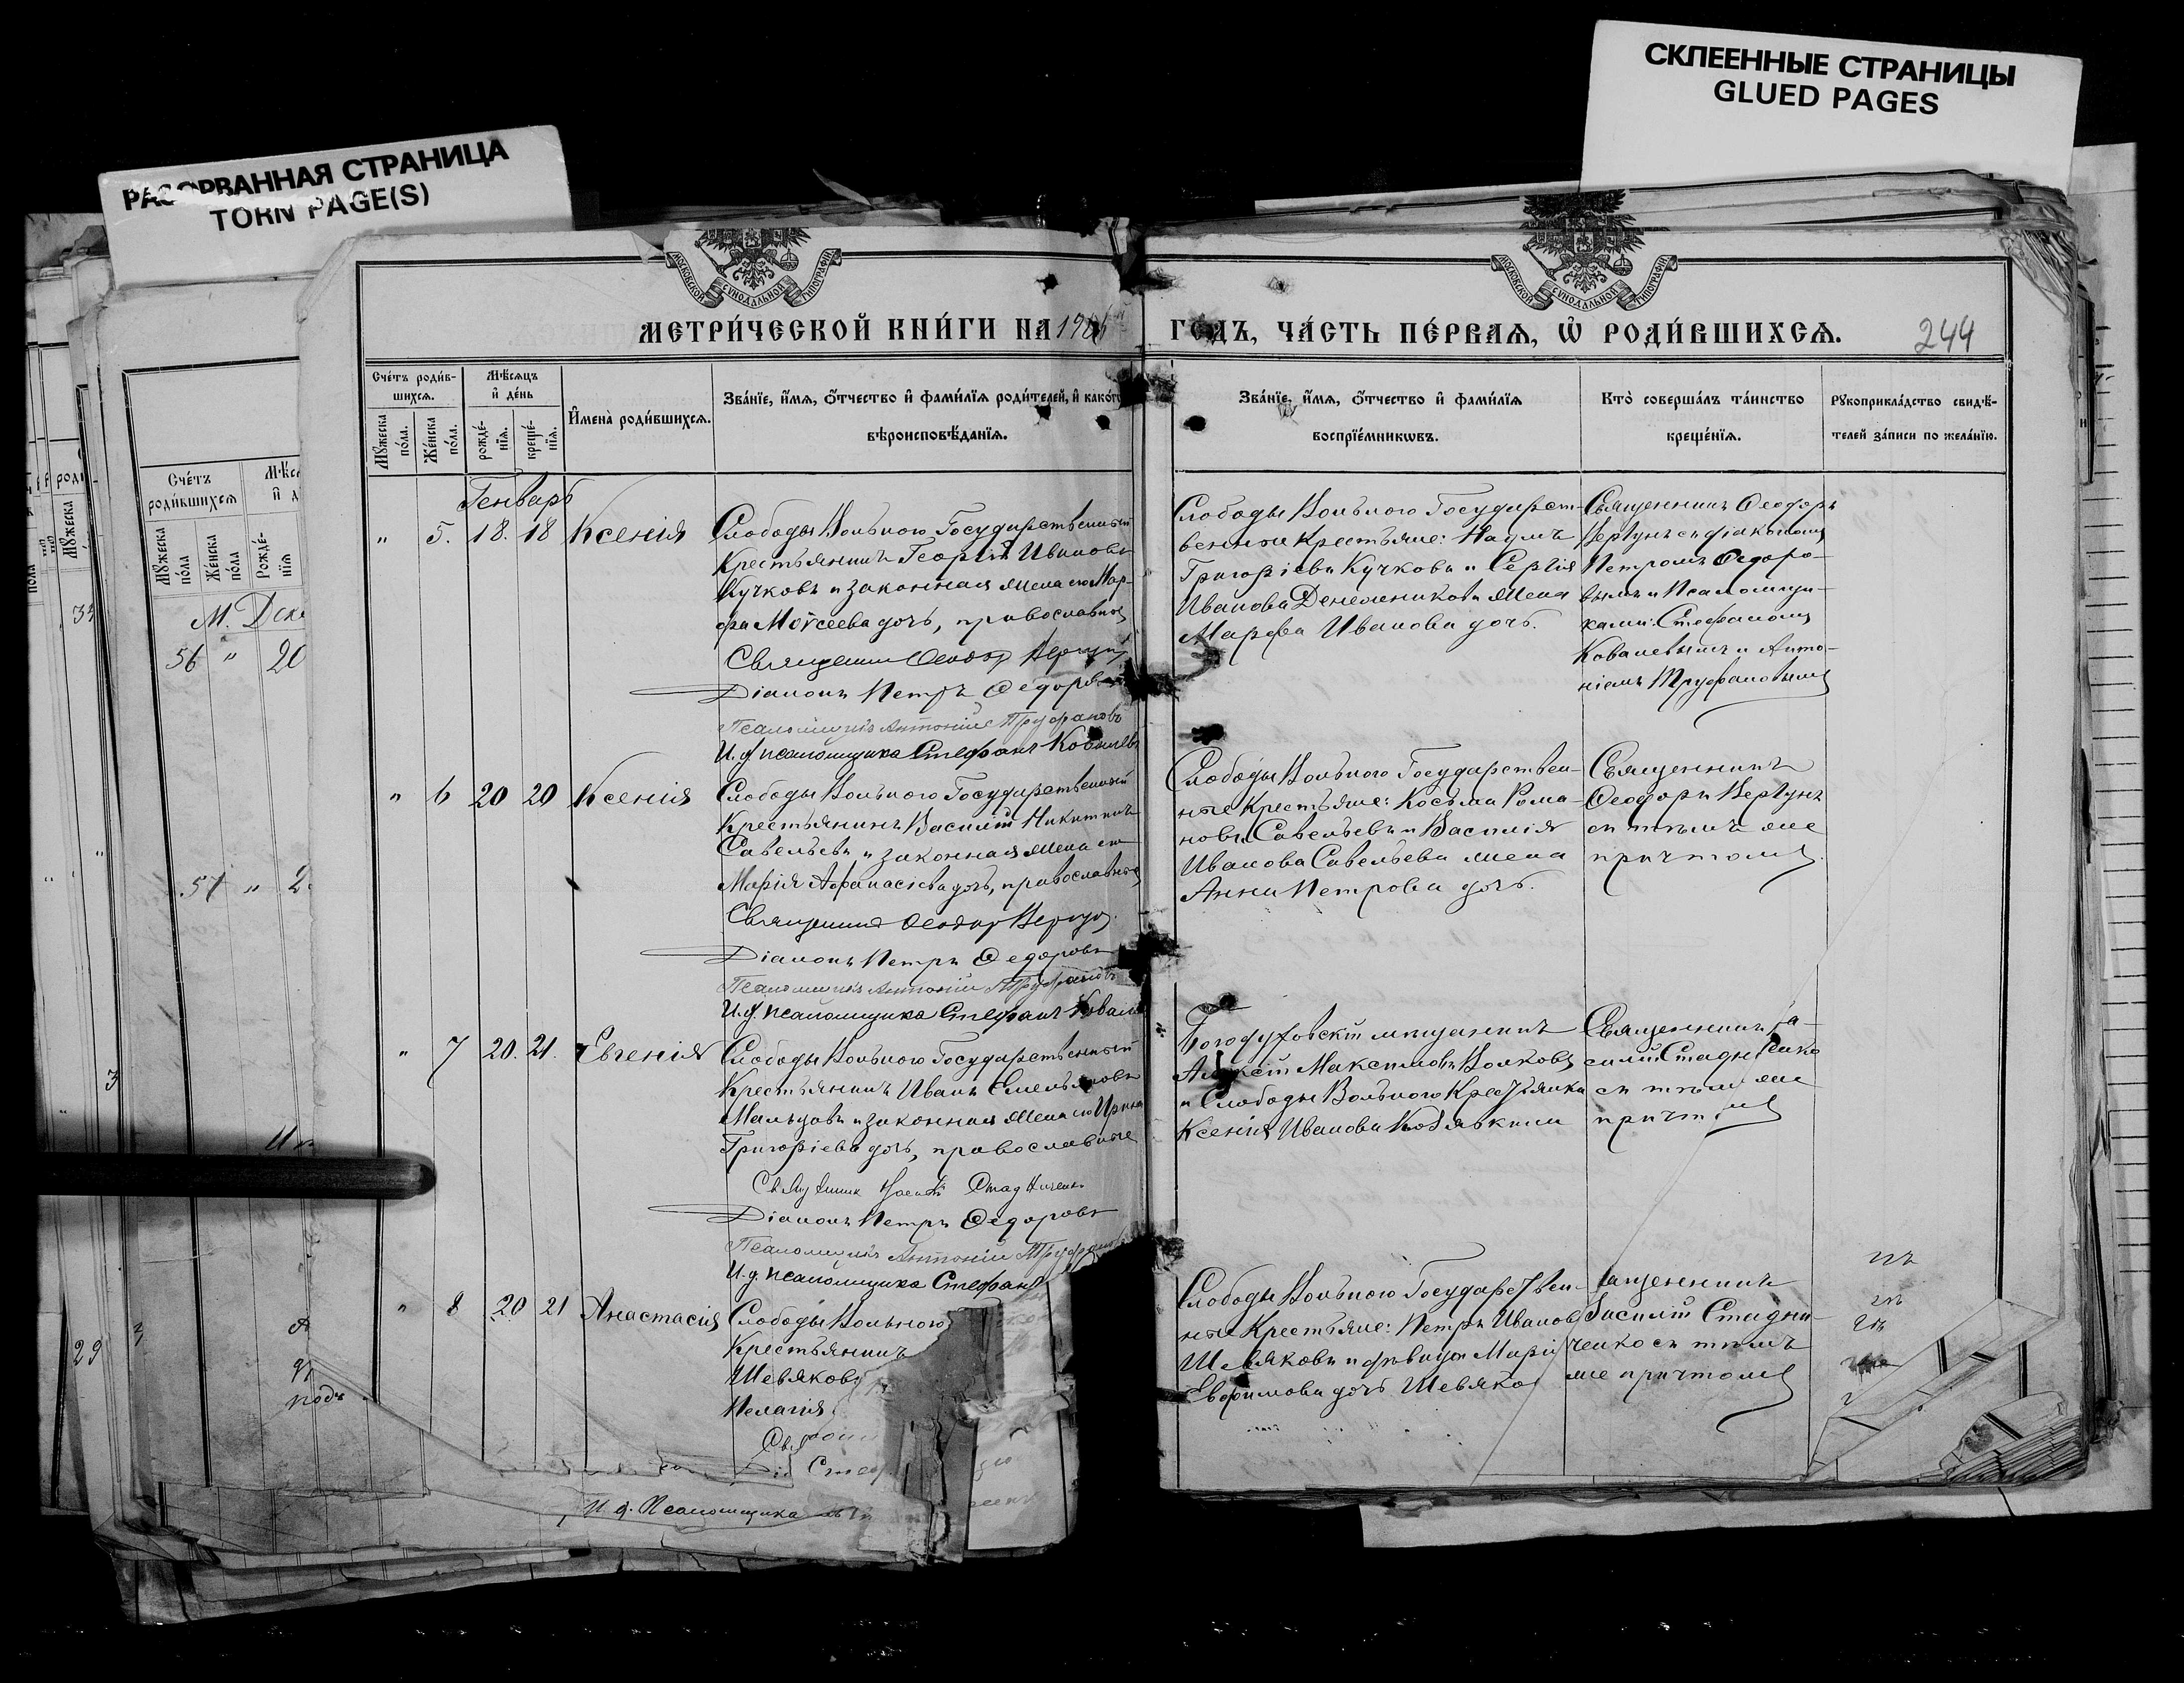 РАЗОРВАННАЯ СТРАНИЦА
TORN PAGE(S)
СКЛЕЕННЫЕ СТРАНИЦЫ
GLUED PAGES
МОСКОВСКОЙ СѴНОДАЛЬНОЙ ТИПОГРАФІИ
МОСКОВСКОЙ СѴНОДАЛЬНОЙ ТИПОГРАФІИ
МЕТРИ́ЧЕСКОЙ КНИ́ГИ НА 190
ГОДЪ, ЧА́СТЬ ПЕ́РВАѦ, Ѡ҆ РОДИ́ВШИХСѦ.
244
Сче́тъ роди́в-
шихсѧ.
Мѣ́сѧцъ
и҆ де́нь
Мꙋ́жеска
по́ла.
Же́нска
по́ла.
рожде́-
нїѧ.
креще́-
нїѧ.
И҆мена̀ роди́вшихсѧ.
Зва́нїе, и҆́мѧ, ѻ҆́тчество и҆ фами́лїѧ роди́телей, и҆ како́гѡ
вѣроисповѣ́данїѧ.
Зва́нїе, и҆́мѧ, ѻ҆́тчество и҆ фами́лїѧ
воспрїе́мникѡвъ.
Кто̀ соверша́лъ та́инство
креще́нїѧ.
Рꙋкоприкла́дство свидѣ́-
телей за́писи по жела́нїю.
Генварь
" 5. 18. 18 Ксенія
Слободы Вольного Государственный
Крестьянинъ Георгій Ивановъ
Кучковъ и законная жена его Мар-
фа Моѵсеева дочь, православные
Священникъ Ѳеодоръ Вергунъ
Діаконъ Петръ Ѳедоровъ
Псаломщикъ Антоній Труфановъ
И.д. псаломщика Стефанъ Ковалевъ
Слободы Вольного Государст-
венные Крестьяне: Наумъ
Григоріевъ Кучковъ и Сергія
Иванова Денежникова жена
Марфа Иванова дочь.
Священникъ Ѳеодоръ
Вергунъ съ діакономъ
Петромъ Ѳедоро-
вымъ и Псаломщи-
ками: Стефаномъ
Ковалевымъ и Анто-
ніемъ Труфановымъ
" 6 20 20 Ксенія
Слободы Вольного Государственный
Крестьянинъ Василій Никитинъ
Савельевъ и законная жена его
Марія Аѳанасіева дочь, православные
Священникъ Ѳеодоръ Вергунъ
Діаконъ Петръ Ѳедоровъ
Псаломщикъ Антоній Труфановъ
И.д. псаломщика Стефанъ Ковалевъ
Слободы Вольного Государствен-
ные Крестьяне: Косьма Рома-
новъ Савельевъ и Василія
Иванова Савельева жена
Анна Петрова дочь.
Священникъ
Ѳеодоръ Вергунъ
съ тѣмъ же
причтомъ.
" 7 20. 21. Евгенія
Слободы Вольного Государственный
Крестьянинъ Иванъ Емельяновъ
Мальцовъ и законная жена его Ирина
Григоріева дочь, православные
Священникъ Василій Стадниченко
Діаконъ Петръ Ѳедоровъ
Псаломщикъ Антоній Труфановъ
И.д. псаломщика Стефанъ
Богодуховскій мѣщанинъ
Алексѣй Максимовъ Волковъ
и Слободы Вольного Крестьянка
Ксенія Иванова
Священникъ Ва-
силій Стадниченко
съ тѣмъ же
причтомъ
" 8 20 21 Анастасія
Слободы Вольного
Крестьянинъ
Шевяковъ
Пелагія
И. д. Псаломщика
Слободы Вольного Государствен-
ные Крестьяне: Петръ Ивановъ
Шевяковъ и дѣвица Марія
Евфимова дочь Шевяко
ященникъ
Василій Стадни-
ченко съ тѣмъ
же причтомъ
Сче́тъ
роди́вшихсѧ
Мꙋ́жеска
по́ла
Же́нска
по́ла
Рожде́-
нїѧ
М. Дека
56 " 20
57 " 2
29
подъ